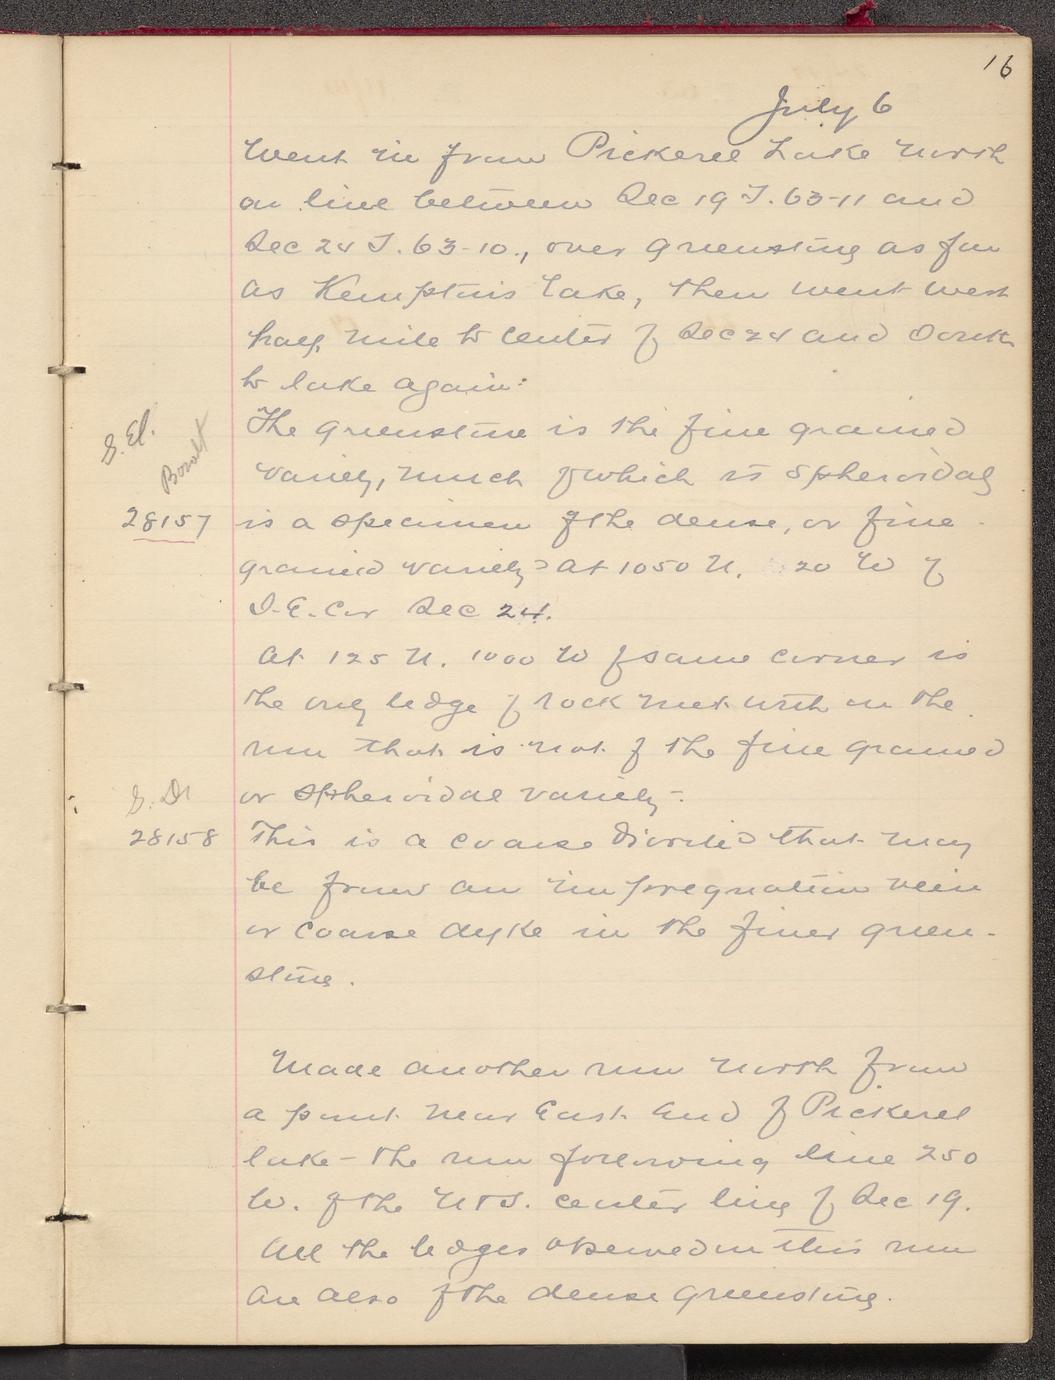 16
July 6
Went in from Pickerel Lake north
on line between Sec 19 T. 63-11 and
Sec 24 T. 63-10., over greenstone as far
as Kemptons lake, then went west
half mile to center of Sec 24 and South
to lake again.
The greenstone is the fine grained
variety, much of which is spheroidal
S. El.
Basalt
28157 is a specimen of the dense, or fine
grained variety at 1050 N. 20 W of
S.E. Cor Sec 24.
At 125 N. 1000 W of same corner is
the only ledge of rock met with on the
run that is not of the fine grained
or spheroidal variety.
S. Di
28158 This is a coarse diorite that may
be from an impregnation vein
or coarse dyke in the finer green-
stone.
Made another run north from
a point near East End of Pickerel
lake - the run following line 250
W. of the N & S. center line of Sec 19.
All the ledges observed on this run
are also of the dense greenstone.